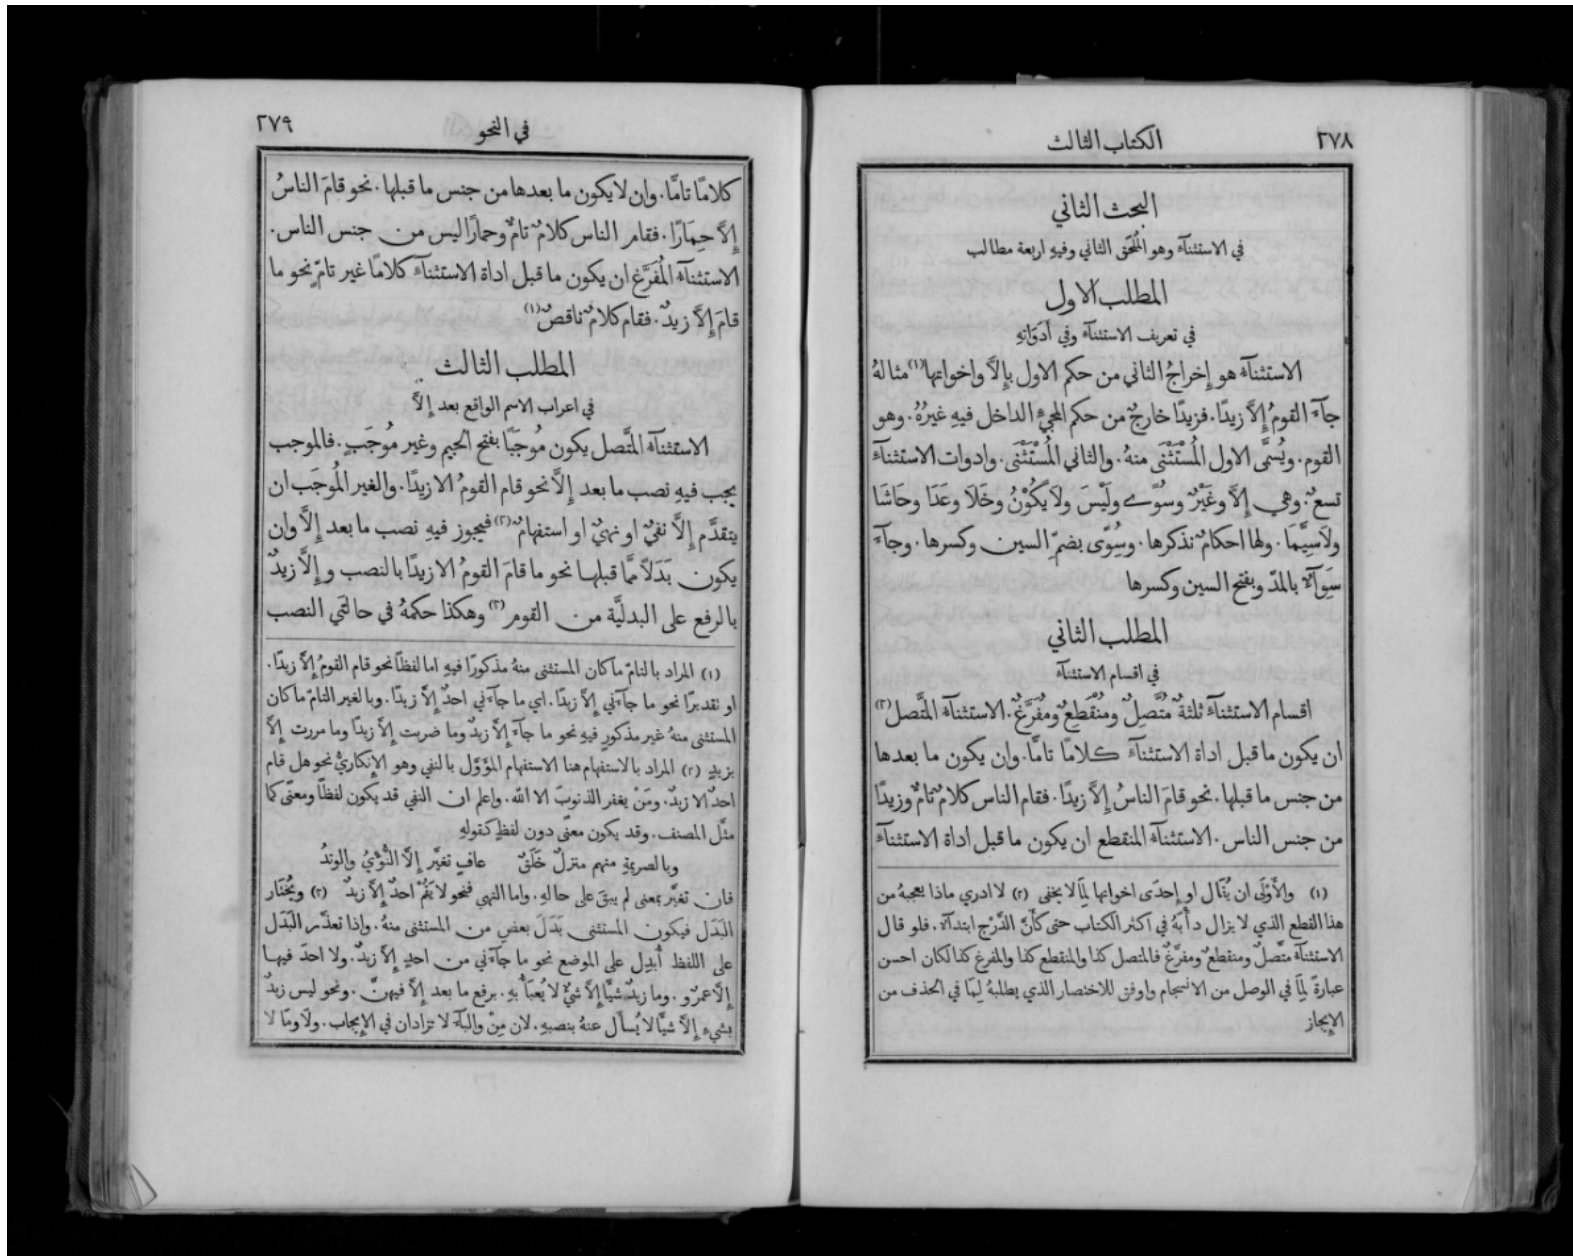 ٢٧٨
الكتاب الثالث
البحث الثاني
في الاستثنآء وهو المُلحَق الثاني وفيهِ اربعة مطالب
المطلب الاول
في تعريف الاستثنآء وفي أَدَوَاتِهِ
الاستثنآء هو إِخراجُ الثاني من حكم الاول بإِلاَّ واخواتها(١) مثالهُ
جآءَ القومُ إِلاَّ زيدًا. فزيدًا خارجٌ من حكم المجيْءِ الداخل فيهِ غيرُهُ. وهو
القوم. ويُسمَّى الاول المُسْتَثْنَى منهُ. والثاني المُسْتَثْنَى. وادوات الاستثنآء
تسعٌ. وهي إِلاَّ وغَيْرٌ وسُوًى ولَيْسَ ولاَ يَكُوْنُ وخَلاَ وعَدَا وحَاشَا
ولاَسِيَّمَا. ولها احكامٌ نذكرها. وسِوًى بضمّ السين وكسرها. وجآءَ
سَِوَآءٌ بالمدّ وبفتح السين وكسرها
المطلب الثاني
في اقسام الاستثنآء
اقسام الاستثنآء ثلثةٌ مُتَّصِلٌ ومُنْقَطِعٌ ومُفَرَّغٌ. الاستثنآء المتَّصل(٢)
ان يكون ما قبل اداة الاستثنآء كلامًا تامًّا. وان يكون ما بعدها
من جنس ما قبلها. نحو قامَ الناسُ إِلاَّ زيدًا. فقام الناس كلامٌ تامٌّ وزيدًا
من جنس الناس. الاستثنآء المنقطع ان يكون ما قبل اداة الاستثنآء
(١) والأَوْلَى ان يُقَال او إِحدَى اخواتها لِمَا لا يخفى (٢) لا ادري ماذا يعجبهُ من
هذا القطع الذي لا يزال دأْبَهُ في اكثر الكتاب حتى كأَنَّ الدَّرْج ابتدآء. فلو قال
الاستثنآء متَّصلٌ ومنقطعٌ ومفرَّغٌ فالمتصل كذا والمنقطع كذا والمفرغ كذا لكان احسن
عبارةً لِمَا في الوصل من الانسجام واوفق للاختصار الذي يطلبهُ لِمَا في الحذف من
الإِيجاز
٢٧٩
في النحو
كلامًا تامًّا. وان لا يكون ما بعدها من جنس ما قبلها. نحو قامَ الناسُ
إِلاَّ حِمَارًا. فقام الناس كلامٌ تامٌّ وحمارًا ليس من جنس الناس.
الاستثنآء المُفَرَّغ ان يكون ما قبل اداة الاستثنآء كلامًا غير تامٍّ نحو ما
قامَ إِلاَّ زيدٌ. فقام كلامٌ ناقصٌ(١)
المطلب الثالث
في اعراب الاسم الواقع بعد إِلاَّ
الاستثنآء المتَّصل يكون مُوجَبًا بفتح الجيم وغير مُوجَبٍ. فالموجب
يجب فيهِ نصب ما بعد إِلاَّ نحو قام القومُ الا زيدًا. والغير المُوجَب ان
يتقدَّم إِلاَّ نفيٌ او نهيٌ او استفهامٌ(٢) فيجوز فيهِ نصب ما بعد إِلاَّ وان
يكون بَدَلاً ممَّا قبلها نحو ما قامَ القومُ الا زيدًا بالنصب و إِلاَّ زيدٌ
بالرفع على البدليَّة من القوم(٣) وهكذا حكمهُ في حالتَي النصب
(١) المراد بالتامّ ما كان المستثنى منهُ مذكورًا فيهِ اما لفظًا نحو قام القومُ إِلاَّ زيدًا.
او تقديرًا نحو ما جآءَني إِلاَّ زيدًا. اي ما جآءَني احدٌ إِلاَّ زيدًا. وبالغير التامّ ما كان
المستثنى منهُ غير مذكورٍ فيهِ نحو ما جآءَ إِلاَّ زيدٌ وما ضربت إِلاَّ زيدًا وما مررت إِلاَّ
بزيدٍ (٢) المراد بالاستفهام هنا الاستفهام المؤَوَّل بالنفي وهو الإِنكاريُّ نحو هل قام
احدٌ الا زيدٌ. ومَنْ يغفر الذنوبَ الا الله. واعلم ان النفي قد يكون لفظًا ومعنًى كما
مثَّل المصنف. وقد يكون معنًى دون لفظٍ كقولهِ
وبالصريمةِ منهم منزلٌ خَلَقٌ عافٍ تغيَّر إِلاَّ النُّؤْيُ والوتدُ
فان تغيَّر بمعنى لم يبقَ على حالهِ. واما النهي فنحو لا يَقُمْ احدٌ إِلاَّ زيدٌ (٣) ويُخْتَار
البَدَل فيكون المستثنى بَدَلَ بعضٍ من المستثنى منهُ. واذا تعذَّر البَدَل
على اللفظ أُبدِل على الموضع نحو ما جآءَني من احدٍ إِلاَّ زيدٌ. ولا احدَ فيها
إِلاَّ عمرٌو. وما زيدٌ شيئًا إِلاَّ شيْءٌ لا يُعبَأُ بهِ. برفع ما بعد إِلاَّ فيهنَّ. ونحو ليس زيدٌ
بشيْءٍ إِلاَّ شيئًا لا يُسأَل عنهُ بنصبهِ. لان مِنْ والبآء لا تزادان في الإِيجاب. ولا وما لا